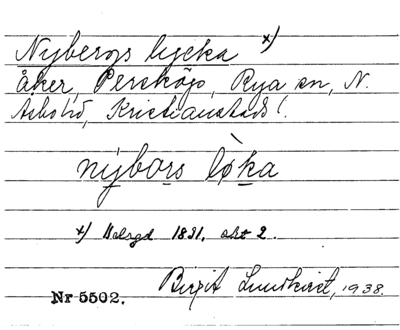 Nybergs lycka x)
Åker, Perstorp, Rya sn, N.
Åsbo hd, Kristianstads l.
nýbors lø̀ka
x) Belagd 1831, akt 2.
Birgit Lundkvist, 1938.
Nr 5502.